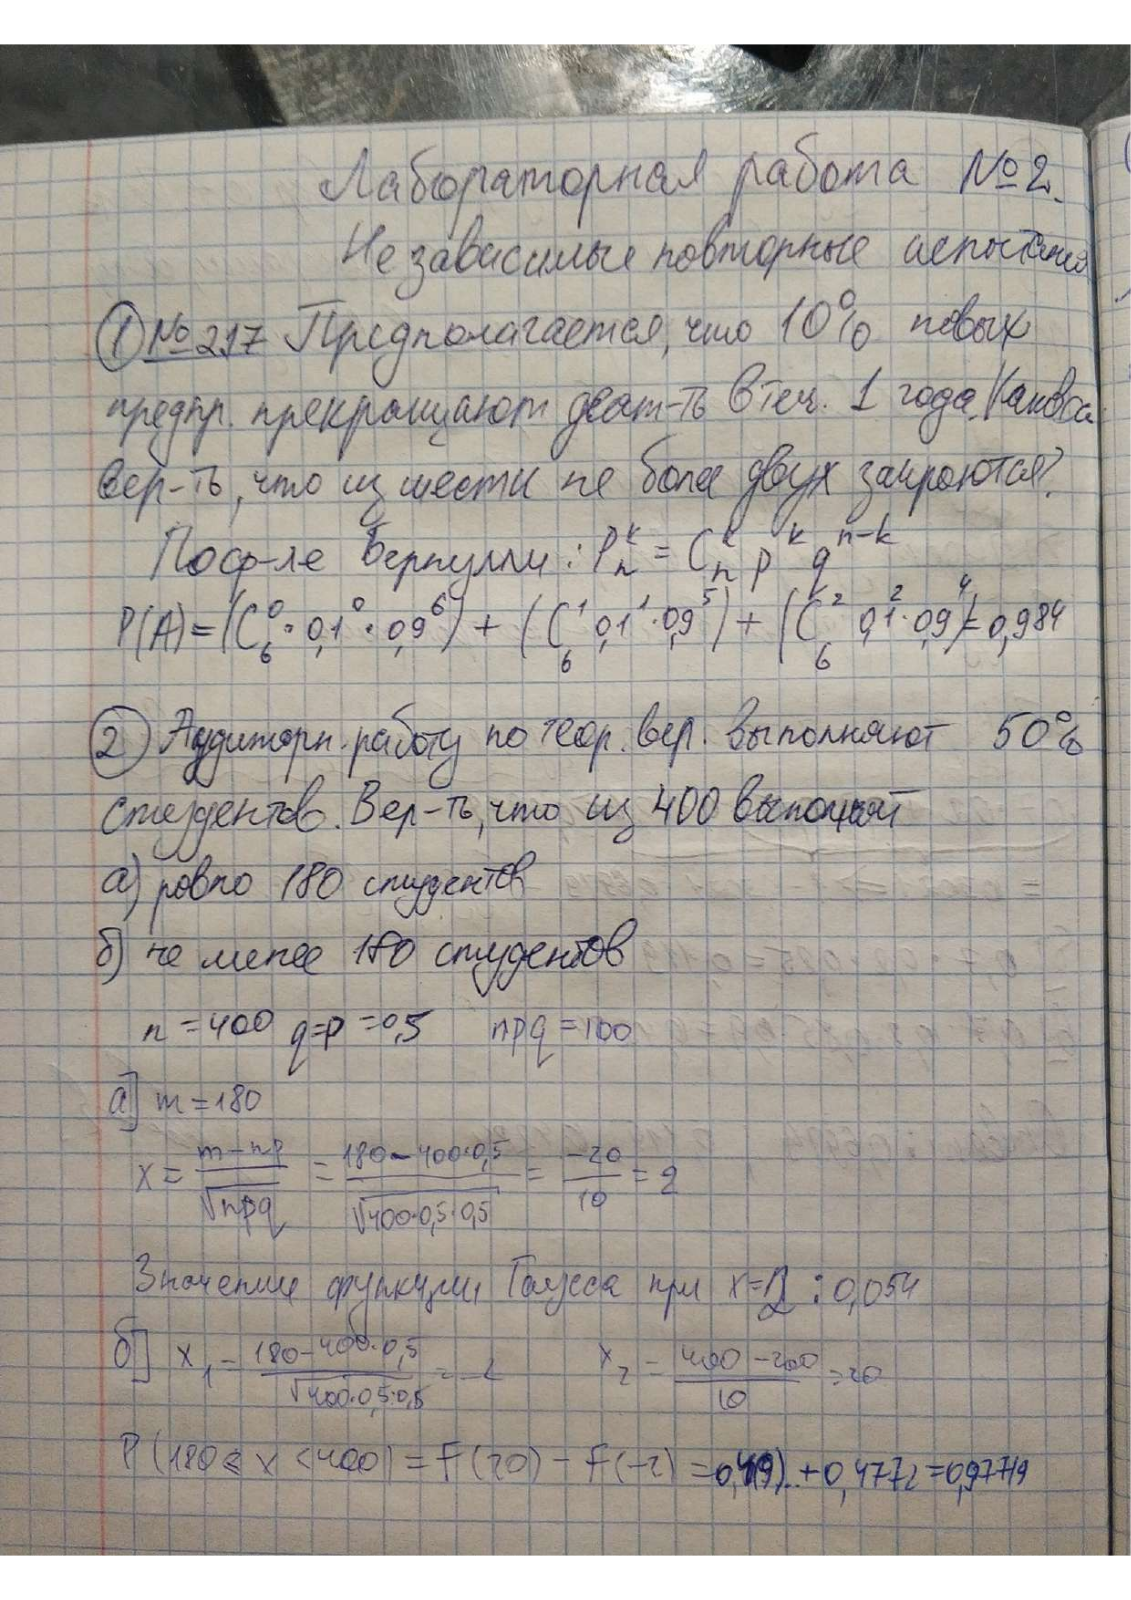 Лабораторная работа №2.
Независимые повторные испытания
① №217 Предполагается, что 10% новых
предпр. прекращают деят-ть в теч. 1 года. Какова
вер-ть, что из шести не более двух закроются?
По ф-ле Бернулли: P_n^k = C_n^k p^k q^{n-k}
P(A) = (C_6^0 · 0,1^0 · 0,9^6) + (C_6^1 0,1^1 · 0,9^5) + (C_6^2 0,1^2 · 0,9^4) = 0,984
② Аудиторн. работу по теор. вер. выполняют 50%
студентов. Вер-ть, что из 400 выполнят
а) ровно 180 студентов
б) не менее 180 студентов
n = 400 q=p = 0,5 npq = 100
а] m = 180
x = (m - np)/√(npq) = (180 - 400·0,5)/√(400·0,5·0,5) = -20/10 = 2
Значение функции Гаусса при x=2 : 0,054
б] x_1 = (180 - 400·0,5)/√(400·0,5·0,5) = -2 x_2 = (400 - 200)/10 = 20
P(180 ≤ x < 400) = F(20) - F(-2) = + 0,4772 = 0,97719